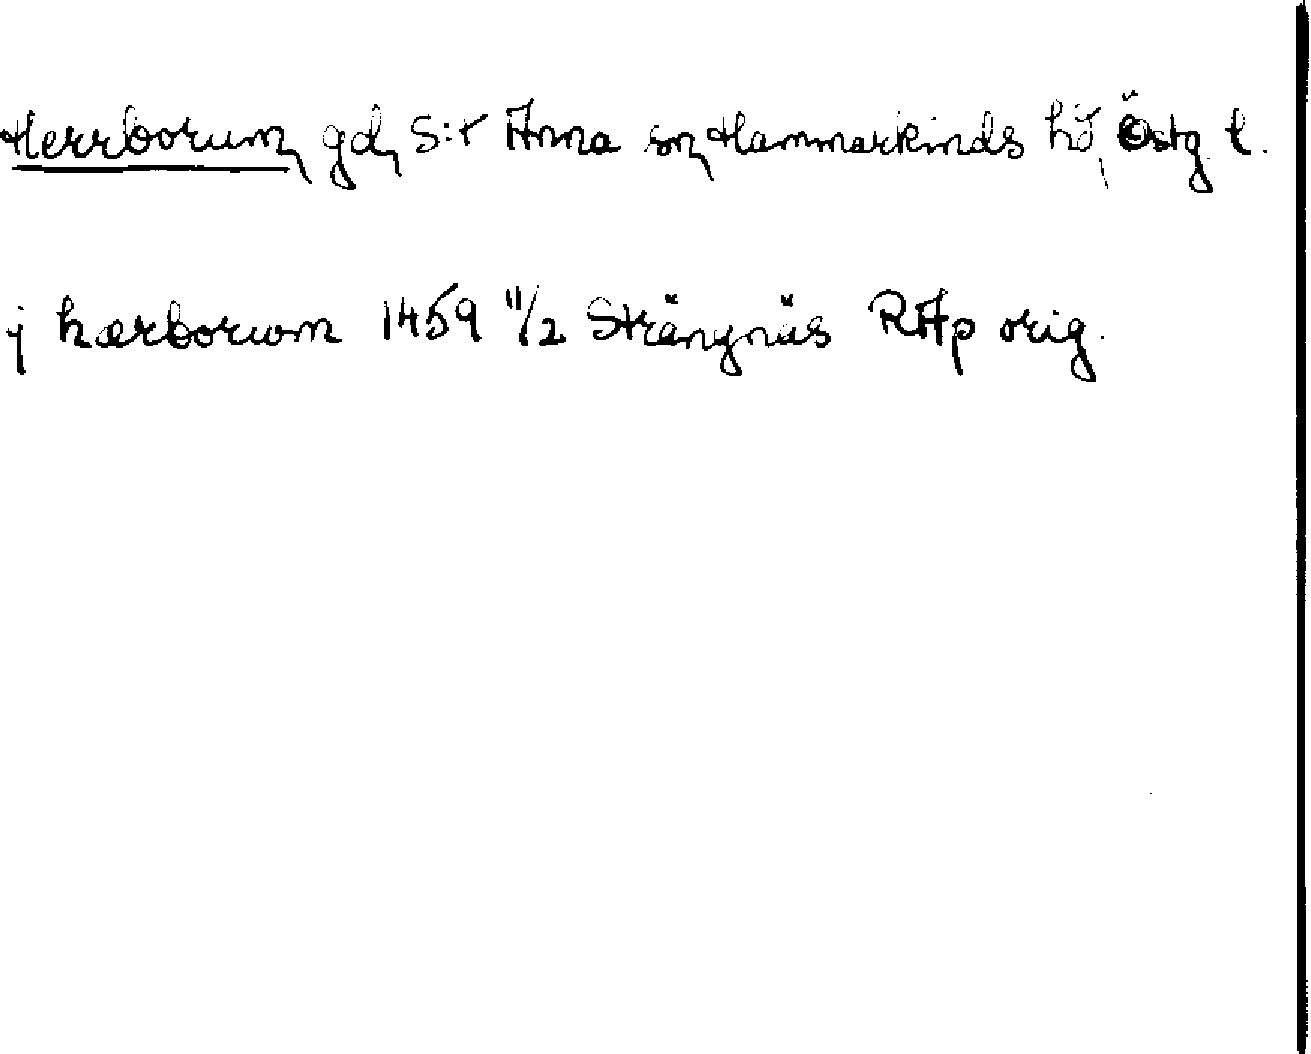 Herrborum, gd, S:t Anna sn, Hammarkinds hd, Östg l.
j hærborum 1459 11/2 Strängnäs RAp orig.